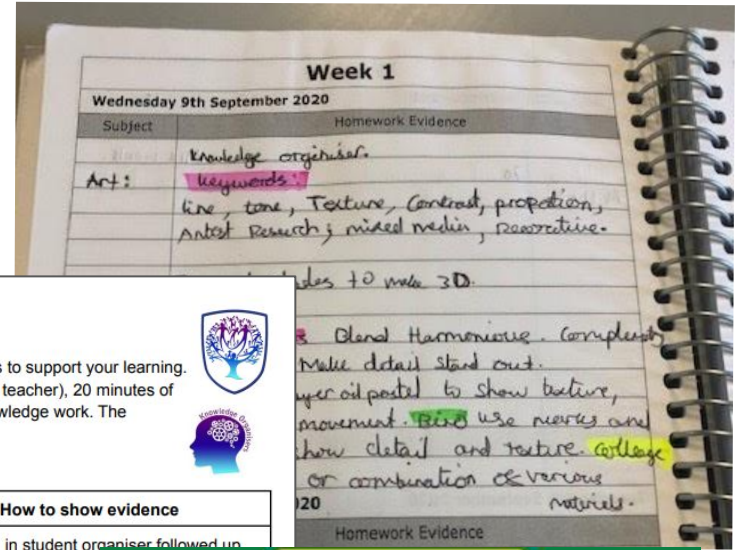 Week 1
Wednesday 9th September 2020
Subject Homework Evidence
Knowledge orginiser.
Art: keywords:
line, tone, Texture, Contrast, propotion,
Artist Research, mixed media, Decorative.
to make 3D.
Blend Harmonious.
Make detail stand out.
oil pastel to show texture,
movement. Bird use marks and
show detail and texture. Collage
or combination of various
materiels.
Homework Evidence
s to support your learning.
teacher), 20 minutes of
wledge work. The
Knowledge Organisers
How to show evidence
in student organiser followed up